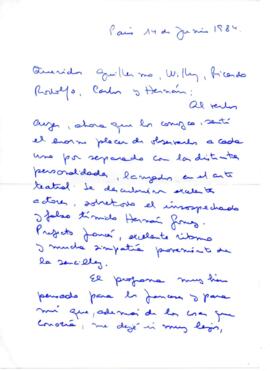 Paris 14 de Junio 1984.
Queridos Guillermo, Willy, Ricardo
Rodolfo, Carlos y Hernán:
Al verlos
ayer, ahora que los conozco, sentí
el enorme placer de observarlos a cada
uno por separado con las distintas
personalidades, lanzados en el arte
teatral. Se descubrieron excelentes
actores, sobretodo el insospechado
y falso tímido Hernán
francés, excelente ritmo
y mucha simpatía proveniente de
la sencillez.
El programa muy bien
pensado para los franceses y para
mí que, además de las cosas que
conocía, me dejé ir muy lejos,